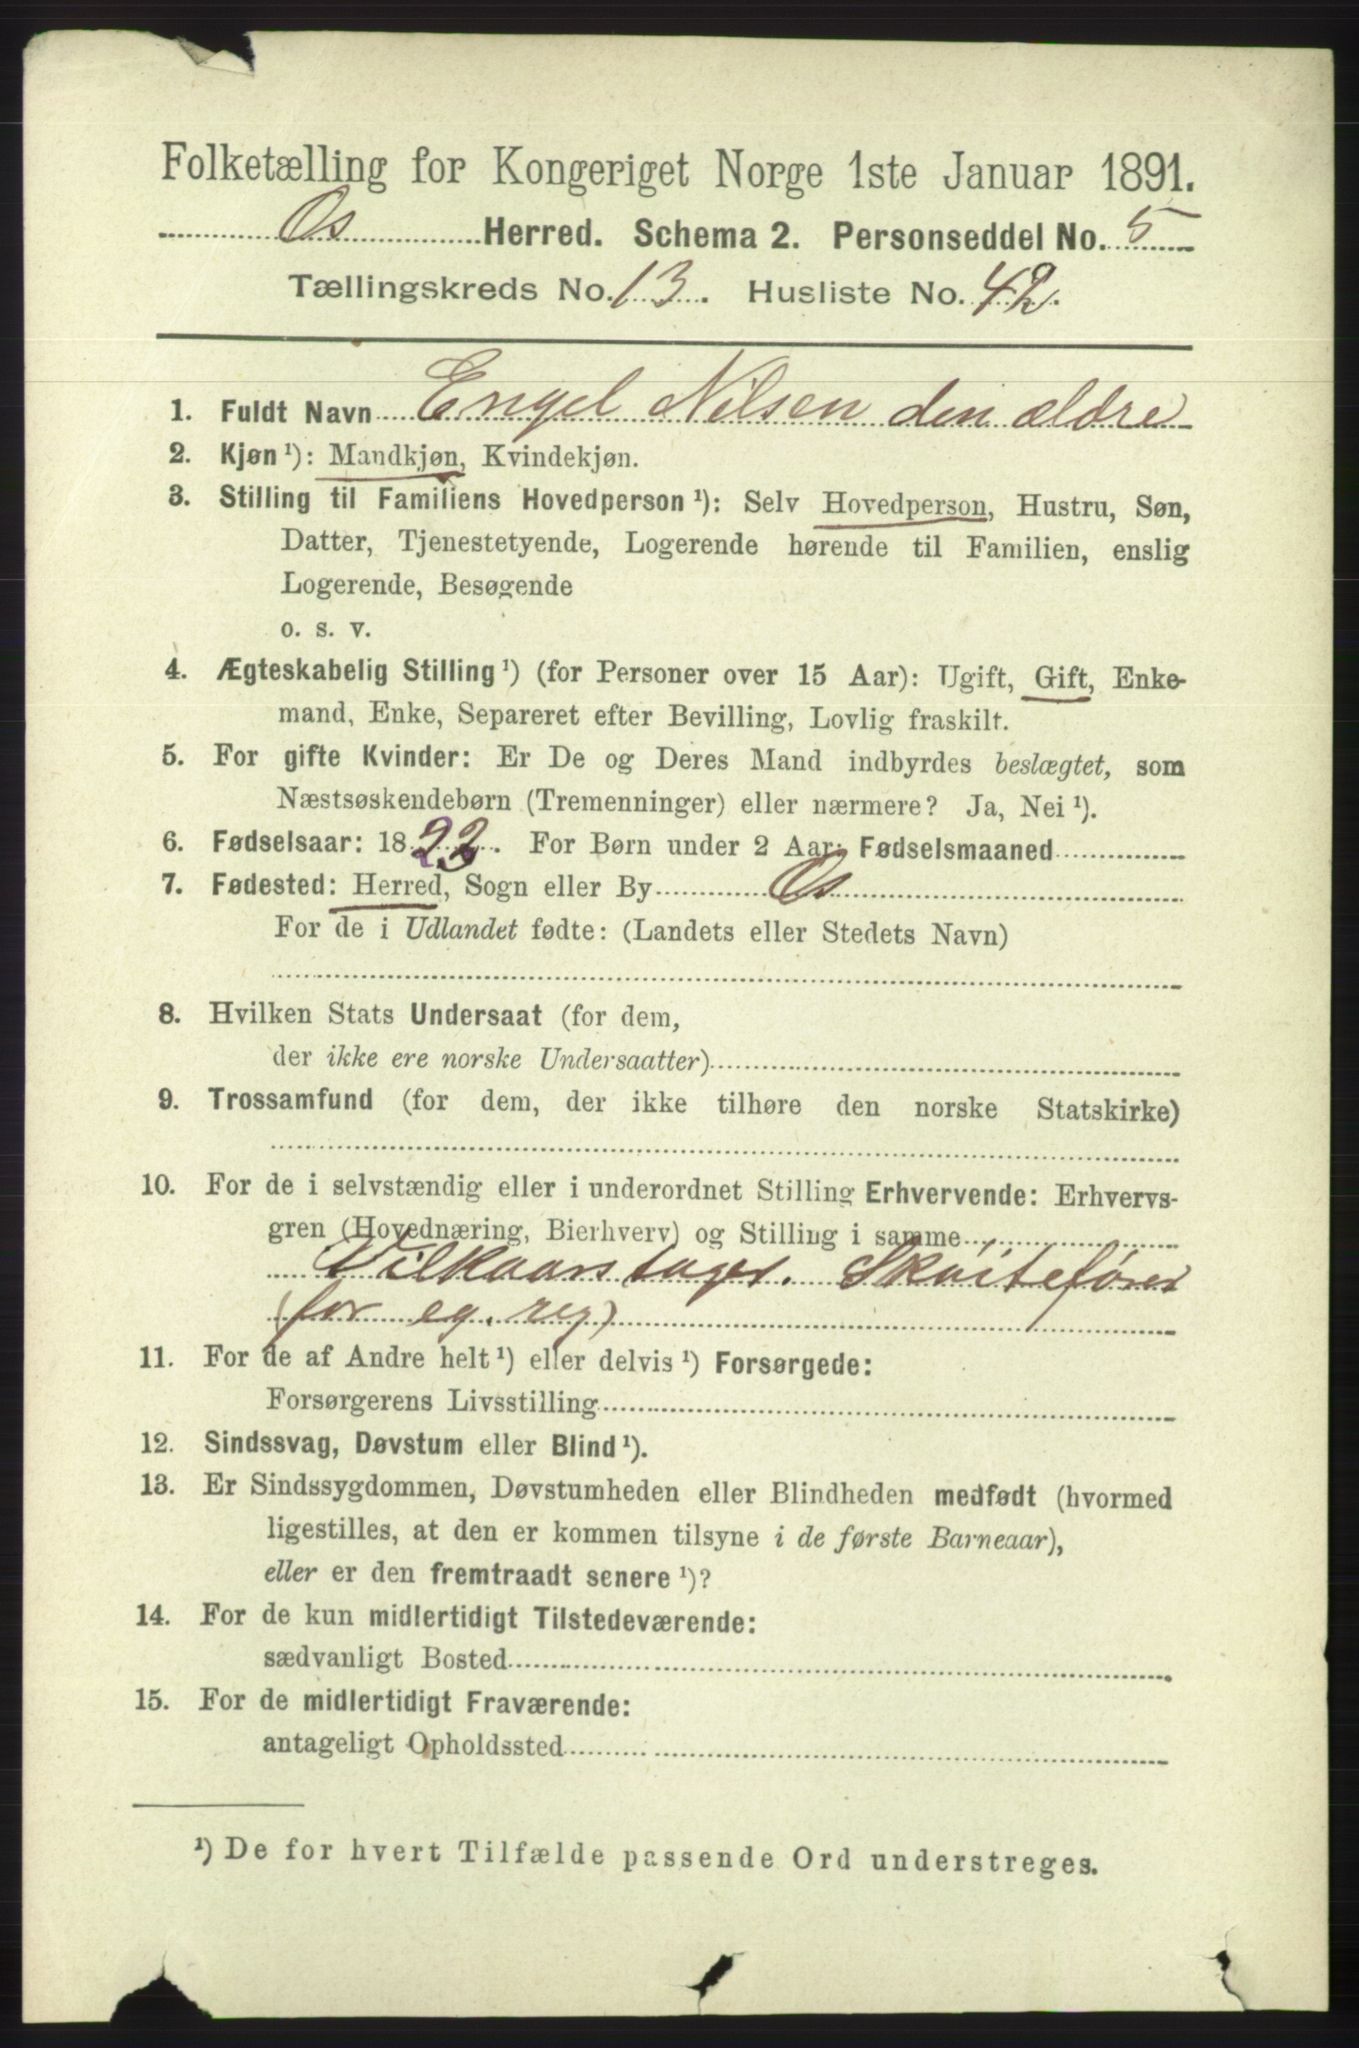 Folketælling for Kongeriget Norge 1ste Januar 1891.
Os Herred. Schema 2. Personseddel No. 5
Tællingskreds No. 13. Husliste No. 42.
1. Fuldt Navn Engel Nilsen den ældre
2. Kjøn ¹): Mandkjøn, Kvindekjøn.
3. Stilling til Familiens Hovedperson ¹): Selv Hovedperson, Hustru, Søn,
Datter, Tjenestetyende, Logerende hørende til Familien, enslig
Logerende, Besøgende
o. s. v.
4. Ægteskabelig Stilling ¹) (for Personer over 15 Aar): Ugift, Gift, Enke-
mand, Enke, Separeret efter Bevilling, Lovlig fraskilt.
5. For gifte Kvinder: Er De og Deres Mand indbyrdes beslægtet, som
Næstsøskendebørn (Tremenninger) eller nærmere? Ja, Nei ¹).
6. Fødselsaar: 1822. For Børn under 2 Aar: Fødselsmaaned
7. Fødested: Herred, Sogn eller By Os
For de i Udlandet fødte: (Landets eller Stedets Navn)
8. Hvilken Stats Undersaat (for dem,
der ikke ere norske Undersaatter)
9. Trossamfund (for dem, der ikke tilhøre den norske Statskirke)
10. For de i selvstændig eller i underordnet Stilling Erhvervende: Erhvervs-
gren (Hovednæring, Bierhverv) og Stilling i samme
Vilkaarstager. Skøitefører
(for eg. reg)
11. For de af Andre helt ¹) eller delvis ¹) Forsørgede:
Forsørgerens Livsstilling
12. Sindssvag, Døvstum eller Blind ¹).
13. Er Sindssygdommen, Døvstumheden eller Blindheden medfødt (hvormed
ligestilles, at den er kommen tilsyne i de første Barneaar),
eller er den fremtraadt senere ¹)?
14. For de kun midlertidigt Tilstedeværende:
sædvanligt Bosted
15. For de midlertidigt Fraværende:
antageligt Opholdssted
¹) De for hvert Tilfælde passende Ord understreges.